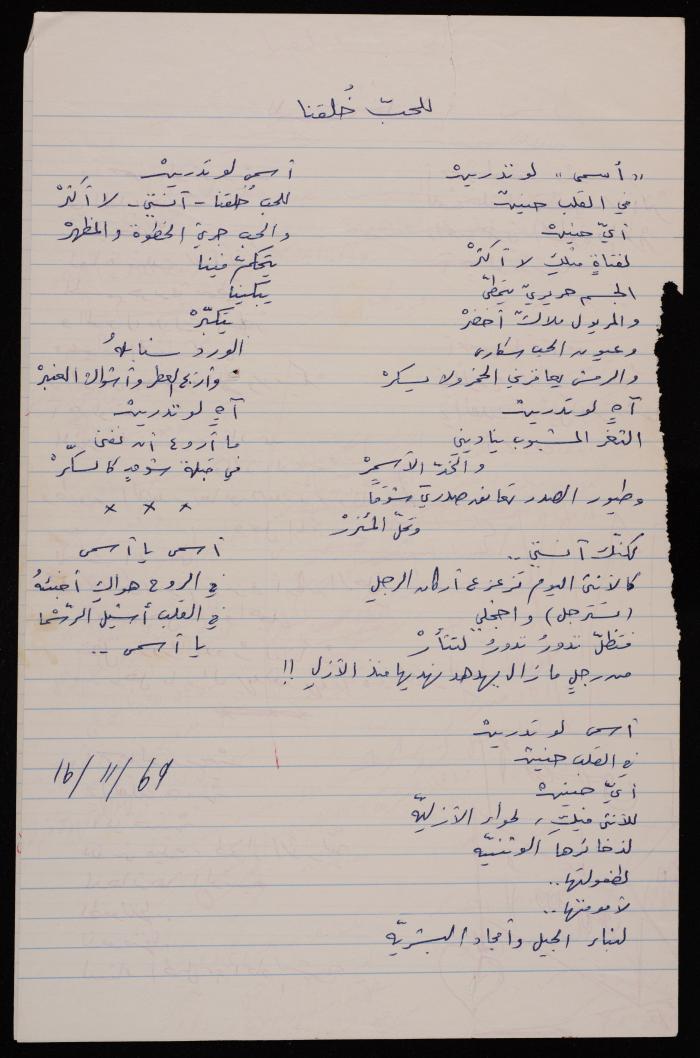 للحبّ خُلقنا
"أسمى" لو تدرين
في القلب حنينٌ
أيّ حنين
لفتاةٍ مثلكِ لا أكثرْ
الجسم حريريّ يتمطّى
والمريول ملاكٌ أخضرْ
وعيون الحب سكارى
والرمش يعاقرني الخمر ولا يسكرْ
آهٍ لو تدرين
الثغر المشبوب يناديني
والخدّ الأسمرْ
وطيور الصدر تعانق صدري شوقًا
وتحلّ المئزرْ
لكنّك أنثى ..
كالأنثى اليوم تزعزع أركان الرجلِ
(تسترجل) واخجلي
فتظلّ تدورُ تدورُ لتثأرْ
من رجلٍ ما زال يهدهد نهديها منذ الأزلِ !!
أسمى لو تدرين
في القلب حنين
أيّ حنين
للأنثى فيكِ، لحواء الأزليّه
لذخائرها الوثنيّه
لطفولتها ..
لأمومتها ..
لبناء الجيل وأمجاد البشريّه
أسمى لو تدرين
للحب خُلقنا - أنثى - لا أكثرْ
والحب جريء الخطوة والمظهرْ
يتحكّم فينا
يبكينا
يتكبّرْ
الورد سنابلهُ
وأريج العطر وأشواك العنبرْ
آهٍ لو تدرين
ما أروع أن نفنى
في قبلة شوقٍ كالسكّرْ
× × ×
أسمى يا أسمى
في الروح هواكِ أخبّئهُ
في القلب أشيل الرّسْما
يا أسمى ..
16/11/69